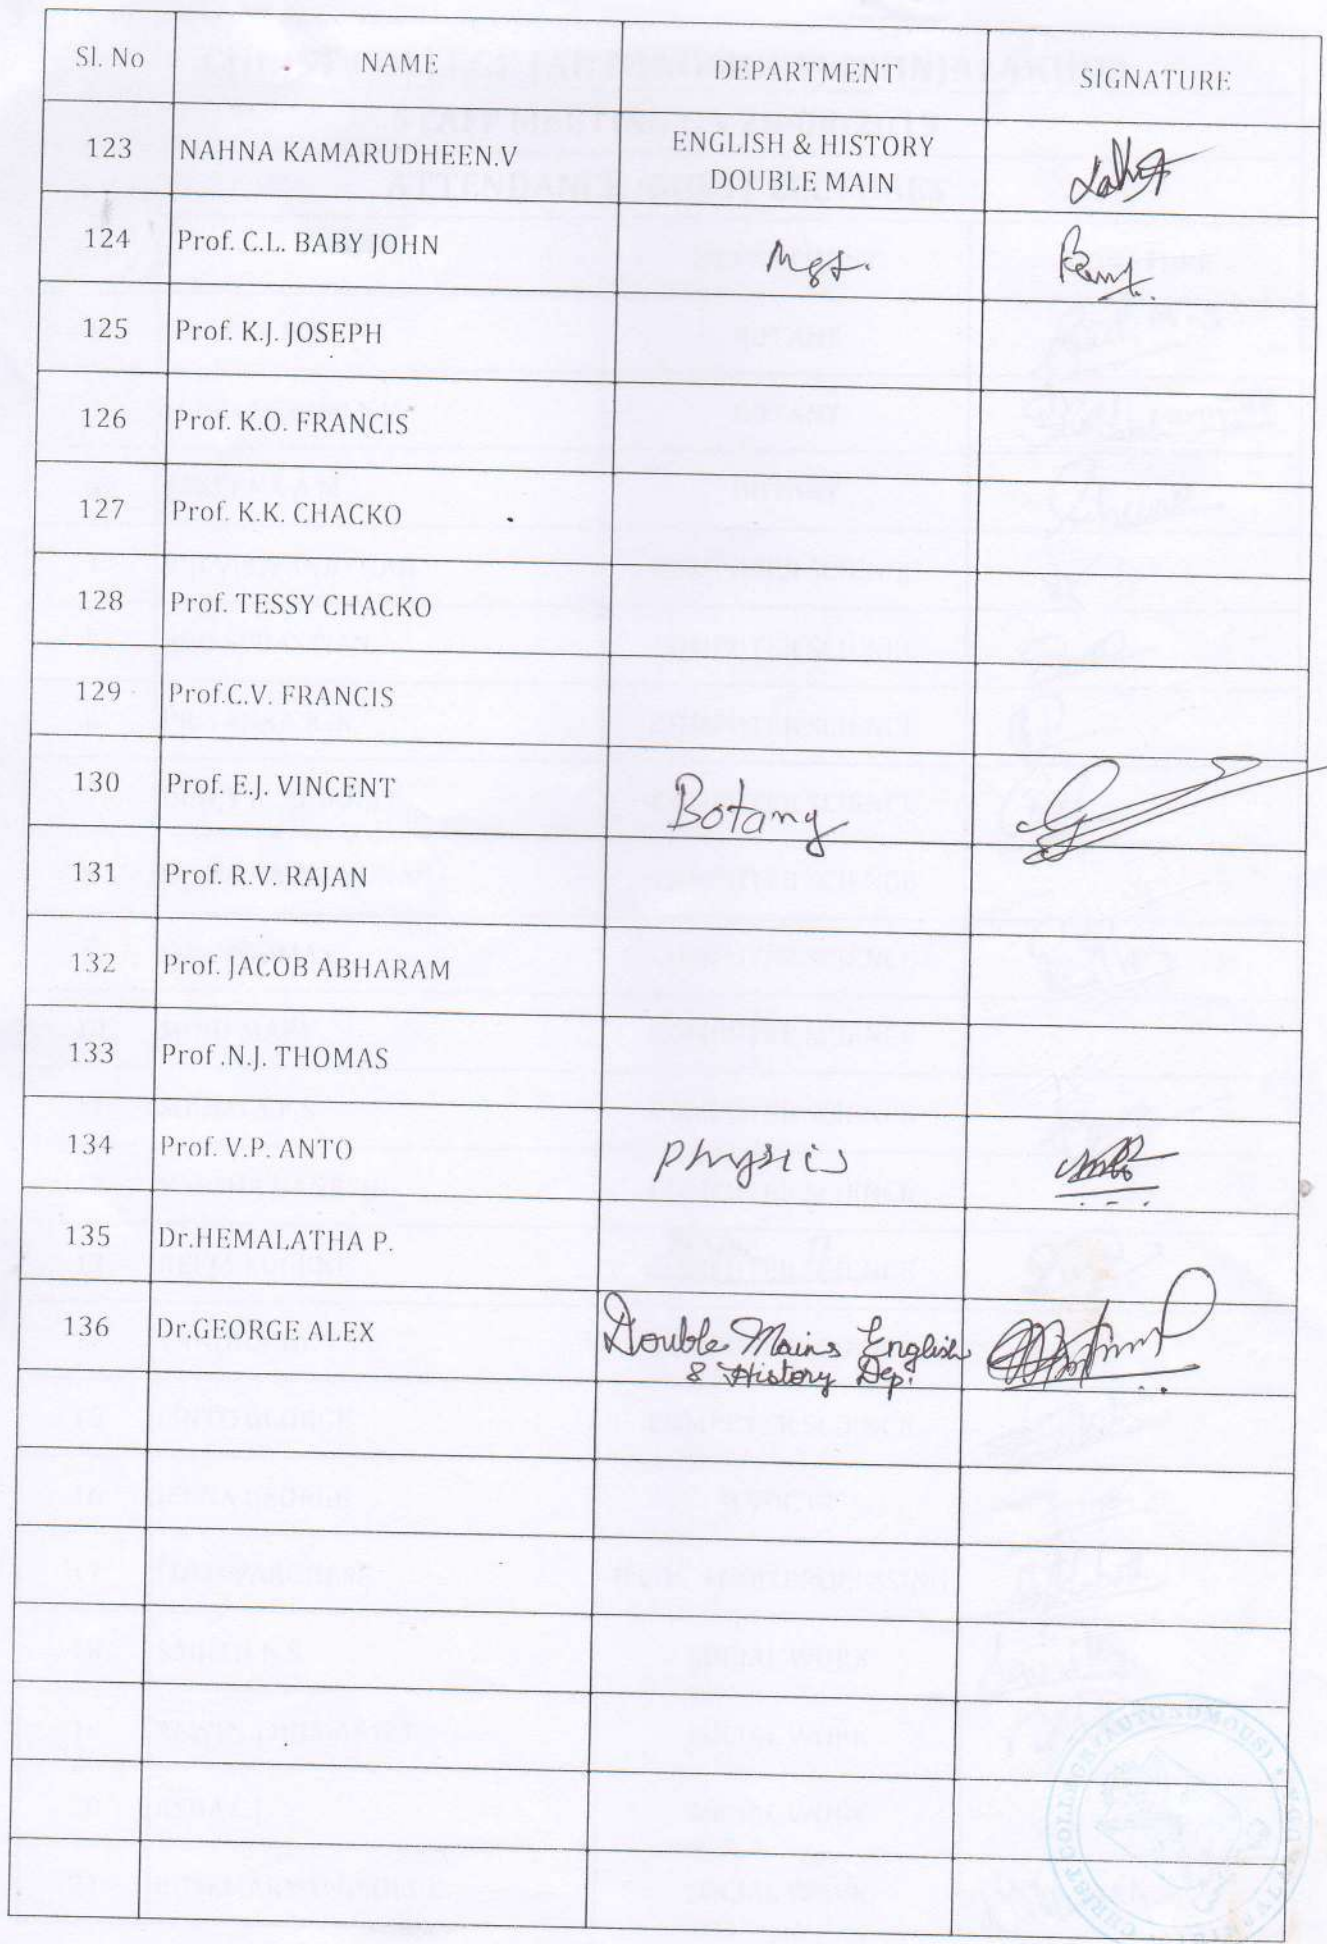 Sl. No NAME DEPARTMENT SIGNATURE
123 NAHNA KAMARUDHEEN.V ENGLISH & HISTORY
DOUBLE MAIN
124 Prof. C.L. BABY JOHN Mgt.
125 Prof. K.J. JOSEPH
126 Prof. K.O. FRANCIS
127 Prof. K.K. CHACKO
128 Prof. TESSY CHACKO
129 Prof.C.V. FRANCIS
130 Prof. E.J. VINCENT Botany
131 Prof. R.V. RAJAN
132 Prof. JACOB ABHARAM
133 Prof .N.J. THOMAS
134 Prof. V.P. ANTO Physics
135 Dr.HEMALATHA P.
136 Dr.GEORGE ALEX Double Mains English
& History Dep.
COLLEGE (AUTONOMOUS)